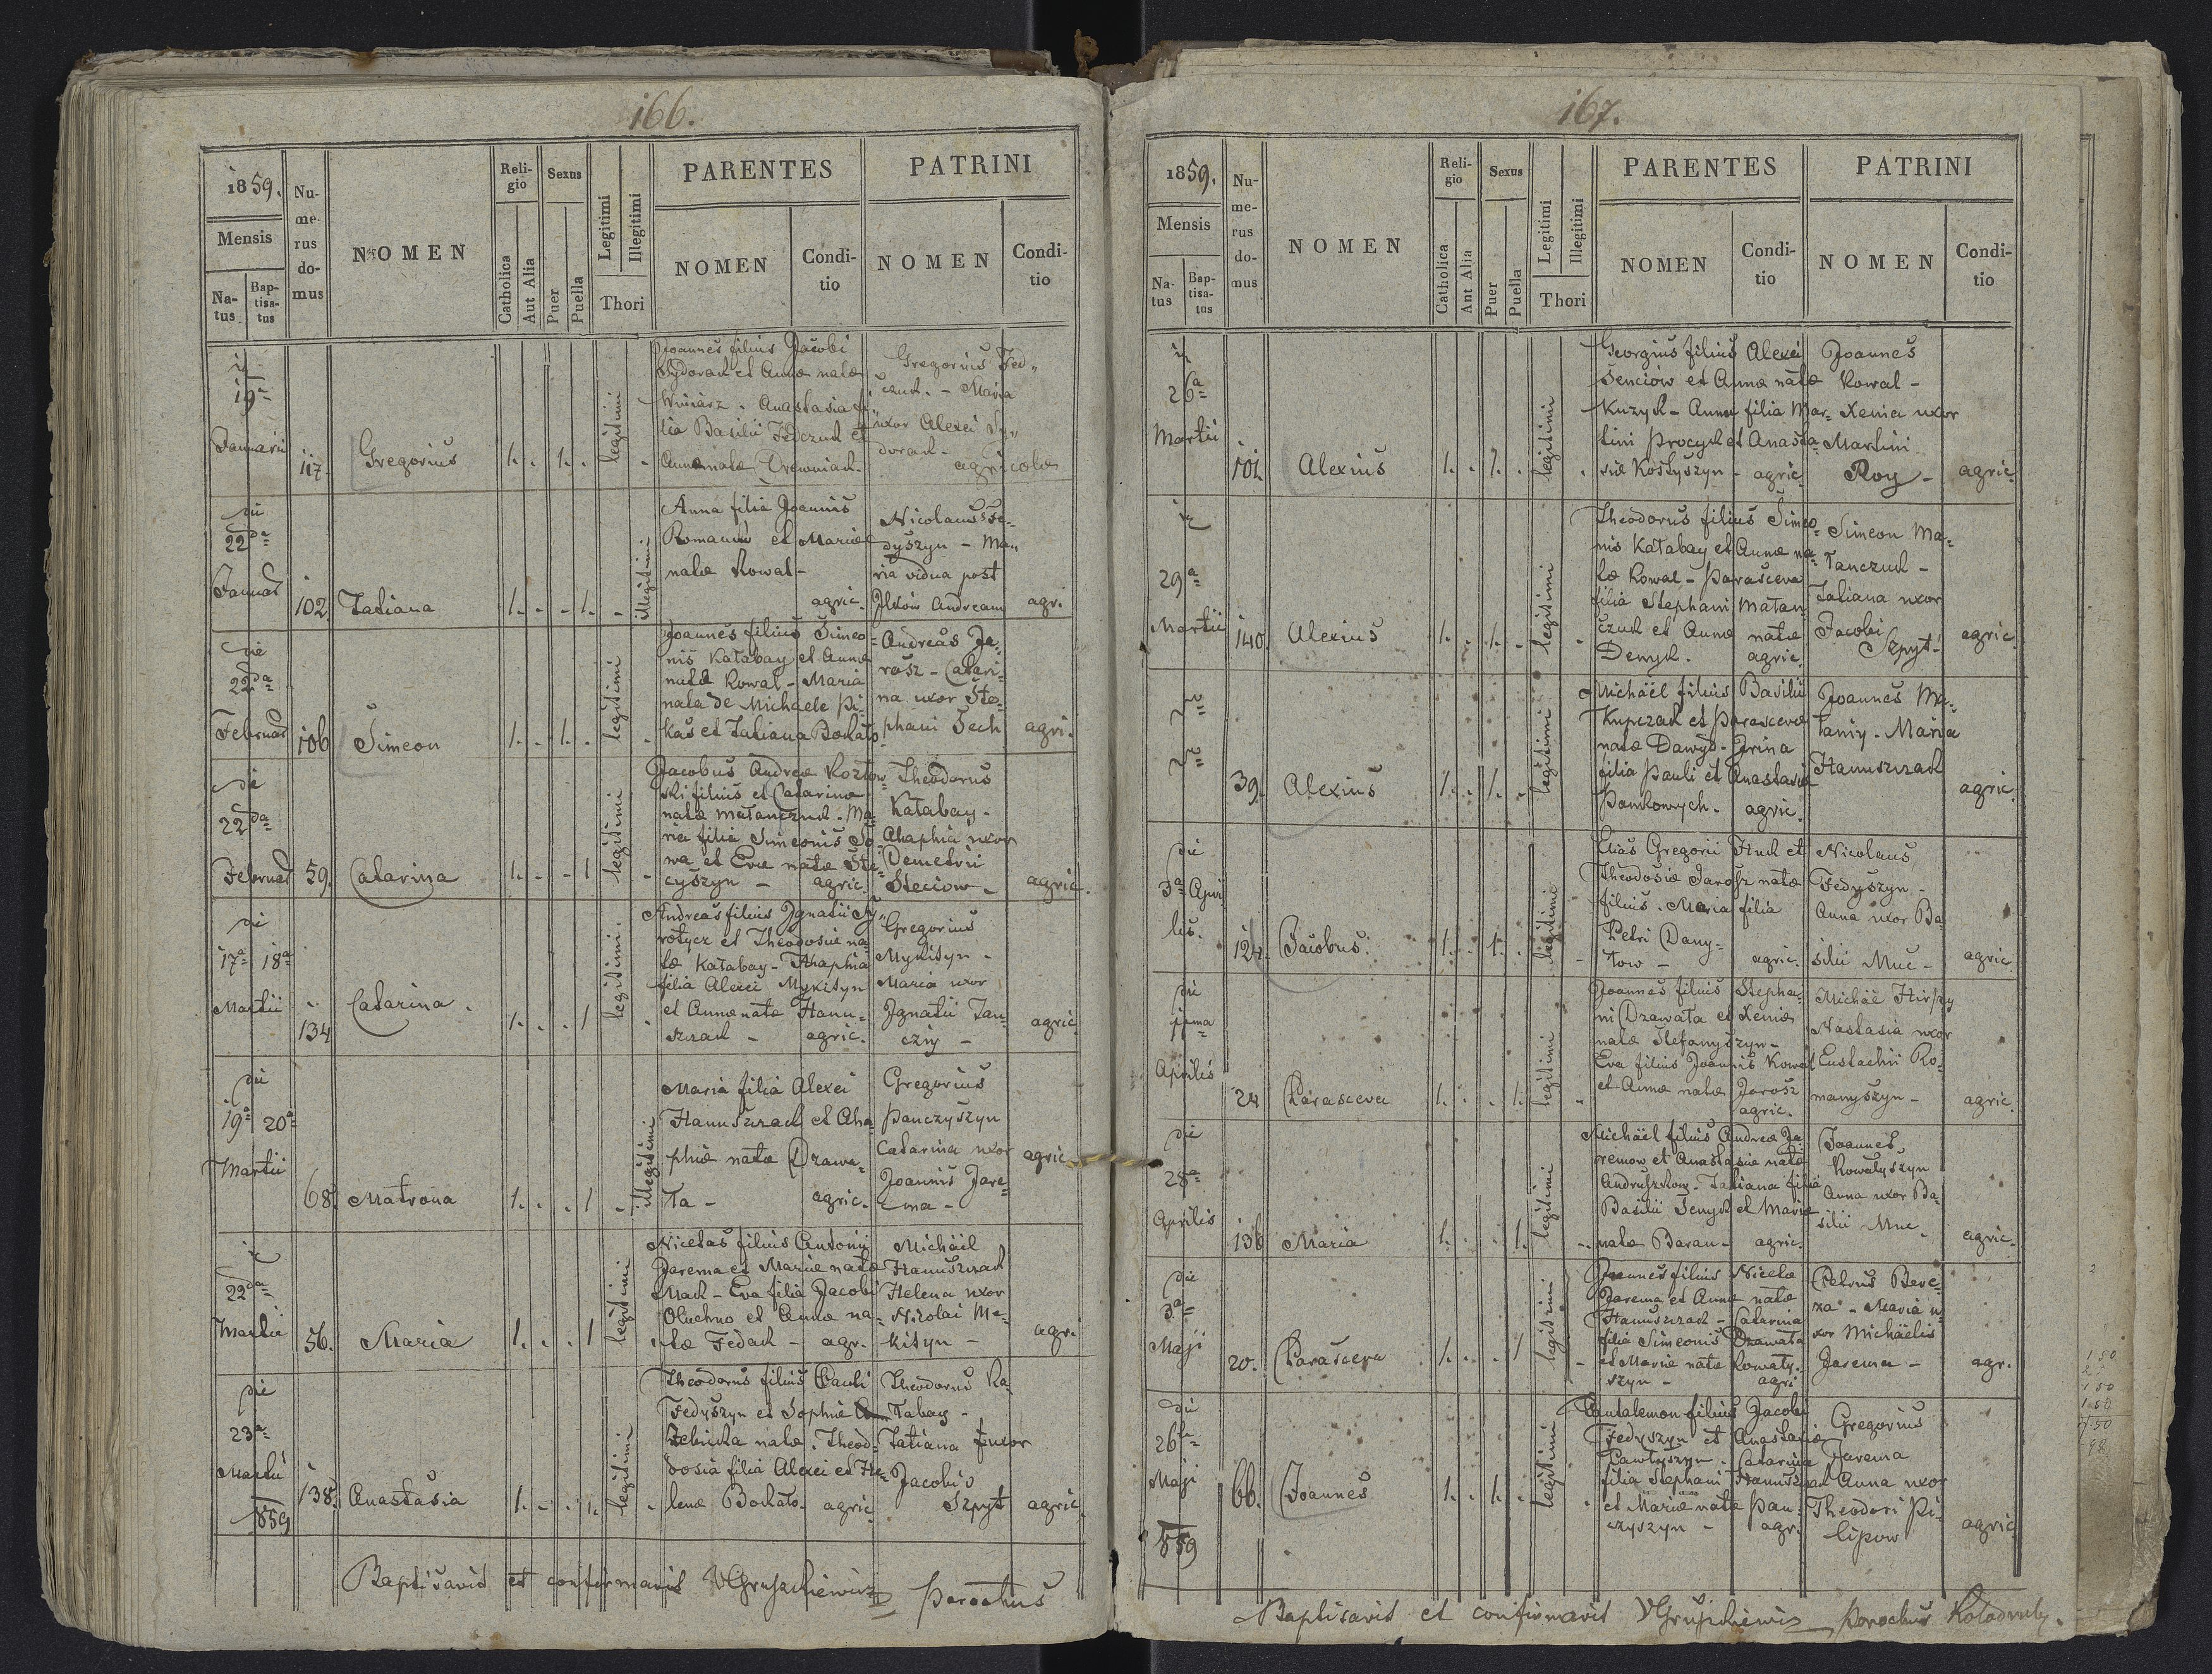 166.
1859.
Mensis
Na-
tus
Bap-
tisa-
tus
Nu-
me-
rus
do-
mus
NOMEN
Reli-
gio
Catholica
Aut Alia
Sexus
Puer
Puella
Legitimi
Illegitimi
Thori
PARENTES
NOMEN
Condi-
tio
PATRINI
NOMEN
Condi-
tio
19a
Januarii
117.
Gregorius
1. . 1. .
legitimi
Joannes filius Jacobi
Sydorak et Annæ natæ
Winiarz. Anastasia fi-
lia Basilii Fedczuk et
Annæ natæ Drewniak.
Gregorius Fed-
czuk. - Maria
uxor Alexei Sy-
dorak.
agricolæ
die
22da
Januar
102.
Tatiana
1. - - 1. -
illegitimi
Anna filia Joannis
Romaniw et Mariæ
natæ Kowal -
agric.
Nicolaus Fe-
dyszyn - Ma-
ria vidua post
Ilkow Andream
agr.
die
22da
Februar
106
Simeon
1. - 1. -
legitimi
Joannes filius Simeo-
nis Kałabay et Annæ
natæ Kowal - Maria
nata de Michaele Pi-
kas et Tatiana Bochato.
Andreas Ja-
rosz - Catari-
na uxor Ste-
phani Sech
agri.
die
22da
Februar
59.
Catarina
1. - - 1
legitimi
Jacobus Andreæ Kozłow-
ski filius et Catarinæ
natæ Matanczuk. Ma-
ria filia Simeonis So-
wa et Evæ natæ Ste-
cyszyn -
agric.
Theodorus
Kałabay.
Ahaphia uxor
Demetrii
Steciow -
agric.
die
17a 18a
Martii
134
Catarina.
1. . . 1
legitimi.
Andreas filius Ignatii Sy-
rotycz et Theodosiæ na-
tæ Kałabay - Ahaphia
filia Alexei Mykityn
et Annæ natæ Hanu-
szczak -
agric.
Gregorius
Mykityn -
Maria uxor
Ignatii Jan-
cziy -
agric.
die
19a 20a
Martii
68.
Matrona
1. . . 1 .
illegitimi
Maria filia Alexei
Hanuszczak et Aha-
phiæ natæ Dzawa-
ła -
agric.
Gregorius
Panczyszyn
Catarina uxor
Joannis Jare-
ma -
agric.
22da
Martii
56.
Maria
1. . . 1
legitimi
Nicetas filius Antonij
Jarema et Mariæ natæ
Mach - Eva filia Jacobi
Oluchno et Annæ na-
tæ Fedak -
agr.
Michail
Hanuszczak
Helena uxor
Nicolai My-
kityn -
agr.
die
23a
Martii
859
138.
Anastasia
1. - . 1.
legitimi
Theodorus filius Pauli
Fedyszyn et Sophiæ
natæ. Theod-
dosia filia Alexei et He-
lenæ Bochato.
agric.
Theodorus Ka-
łabay -
Tatiana uxor
Jacobi
Szpyt
agric.
Baptisavit et confirmavit VGruszkiewicz Parochus
167.
1859.
Mensis
Na-
tus
Bap-
tisa-
tus
Nu-
me-
rus
do-
mus
NOMEN
Reli-
gio
Catholica
Ant Alia
Sexus
Puer
Puella
Legitimi
Illegitimi
Thori
PARENTES
NOMEN
Condi-
tio
PATRINI
NOMEN
Condi-
tio
26a
Martii
101.
Alexius
1. . 1. .
legitimi
Georgius filius Alexei
Senciow et Annæ natæ
Kuzyk - Anna filia Mar-
tini Procyk et Anasta-
siæ Kostyszyn - agric.
Joannes
Kowal -
Xenia uxor
Martini
Roy -
agric.
29a
Martii
140.
Alexius
1. . 1. -
legitimi
Theodorus filius Simeo-
nis Kałabay et Annæ na-
tæ Kowal - Parasceva
filia Stephani Matan-
czuk et Annæ natæ
Denyk.
agric.
Simeon Ma-
tanczuk -
Tatiana uxor
Jacobi
Szpyt -
agric.
39.
Alexius
1. . 1. .
legitimi
Michäel filius Basilii
Kupczak et Parascevæ
natæ Dawyd - Irina
filia Pauli et Anastasiæ
Pankowych.
agric.
Joannes Ma-
taniy - Maria
Hanuszczak
agric.
die
3a Apri-
lis.
124.
Jacobus.
1. . 1. .
legitimi
Elias Gregorii Hnak et
Theodosiæ Jarosz natæ
filius. Maria filia
Petri Dany-
low -
agric.
Nicolaus
Fedyszyn -
Anna uxor Ba-
silii Muc -
agric.
die
11ma
Aprilis
24
Parasceva
1. . . 1.
legitimi
Joannes filius Stepha-
ni Dzawała et Xeniæ
natæ Stefanyszyn -
Eva filius Joannis Kowal
et Annæ natæ Jarosz
agric.
Michäe Hirszy
Nastasia uxor
Eustachii Ro-
manyszyn -
agric.
die
28a
Aprilis
136
Maria
1. . . 1.
legitimi
Michäel filius Andreæ Ja-
remow et Anastasiæ natæ
Andruszkow - Tatiana filia
Basilii Senyk et Mariæ
natæ Baran - agric.
Joannes
Kowalyszyn
Anna uxor Ba-
silii Muc -
agric.
die
3a
Maji
20.
Parasceva
1. . . 1
legitimi
Joannes filius Nicetæ
Jarema et Annæ natæ
Hanuszczak - Catarina
filia Simeonis Dzawała
et Mariæ natæ Kowaly-
szyn -
agri
Petrus Bere-
za - Maria u-
xor Michäelis
Jarema -
agr.
die
26ta
Maji
859
66.
Joannes
1. . 1. .
legitimi
Pantalemon filius Jacobi
Fedyszyn et Anastasiæ
Pawłyszyn. Catarina
filia Stephani Hanuszczak
et Mariæ natæ Pan-
czyszyn -
agr.
Gregorius
Jarema
Anna uxor
Theodori Pi-
lipow
agric.
Baptisavit et confirmavit VGruszkiewicz Parochus Kołodruby.